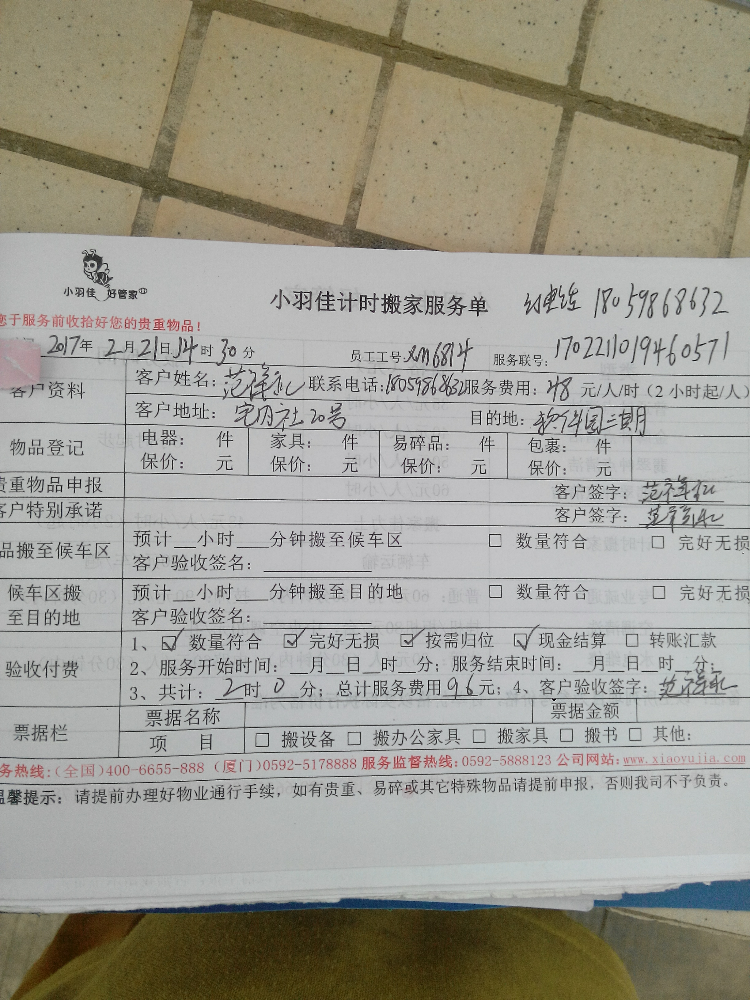 小羽佳 好管家
小羽佳计时搬家服务单 18059868632
您于服务前收拾好您的贵重物品！
2017年2月21日14时30分 员工工号：xm6814 服务联号：1702211019460571
客户资料 客户姓名：范 联系电话：18059868632 服务费用：48元/人/时（2小时起/人）
客户地址：社20号 目的地：园二期
物品登记 电器： 件 家具： 件 易碎品： 件 包裹： 件
保价： 元 保价： 元 保价： 元 保价： 元
贵重物品申报 客户签字：范
客户特别承诺 客户签字：范
品搬至候车区 预计 小时 分钟搬至候车区 □ 数量符合 □ 完好无损
客户验收签名：
候车区搬至目的地 预计 小时 分钟搬至目的地 □ 数量符合 □ 完好无损
客户验收签名：
验收付费 1、☑ 数量符合 ☑ 完好无损 ☑ 按需归位 ☑ 现金结算 □ 转账汇款
2、服务开始时间： 月 日 时 分；服务结束时间： 月 日 时 分；
3、共计：2时0分；总计服务费用96元；4、客户验收签字：范
票据栏 票据名称 票据金额
项 目 □ 搬设备 □ 搬办公家具 □ 搬家具 □ 搬书 □ 其他：
务热线:(全国)400-6655-888 (厦门)0592-5178888 服务监督热线:0592-5888123 公司网站:www.xiaoyujia.com
温馨提示：请提前办理好物业通行手续，如有贵重、易碎或其它特殊物品请提前申报，否则我司不予负责。